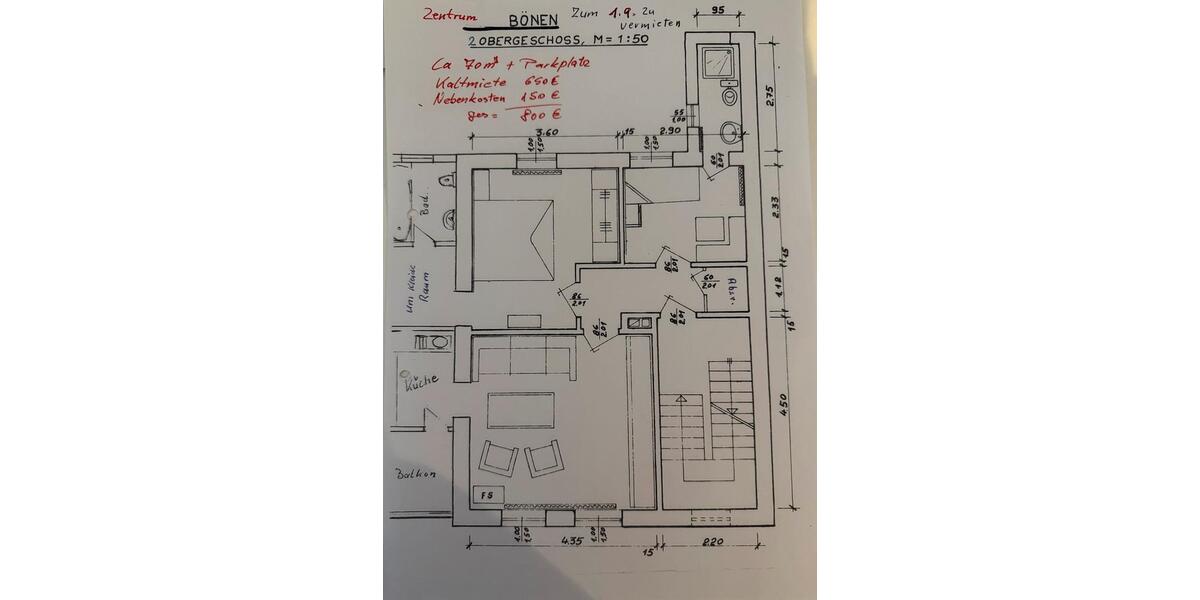 Zentrum BÖNEN Zum 1.9. zu
vermieten
2 OBERGESCHOSS, M = 1:50
Ca 70 m² + Parkplatz
Kaltmiete 650 €
Nebenkosten 150 €
ges = 800 €
95
2.75
55
1.00
3.60
15
2.90
1.00
1.50
1.00
1.50
60
2.01
Bad
2.33
15
86
2.01
um kleine
Raum
60
2.01
Abst.
1.12
86
2.01
86
2.01
86
2.01
15
Küche
4.50
Balkon
FS
1.00
1.50
1.00
1.50
4.35
15
2.20